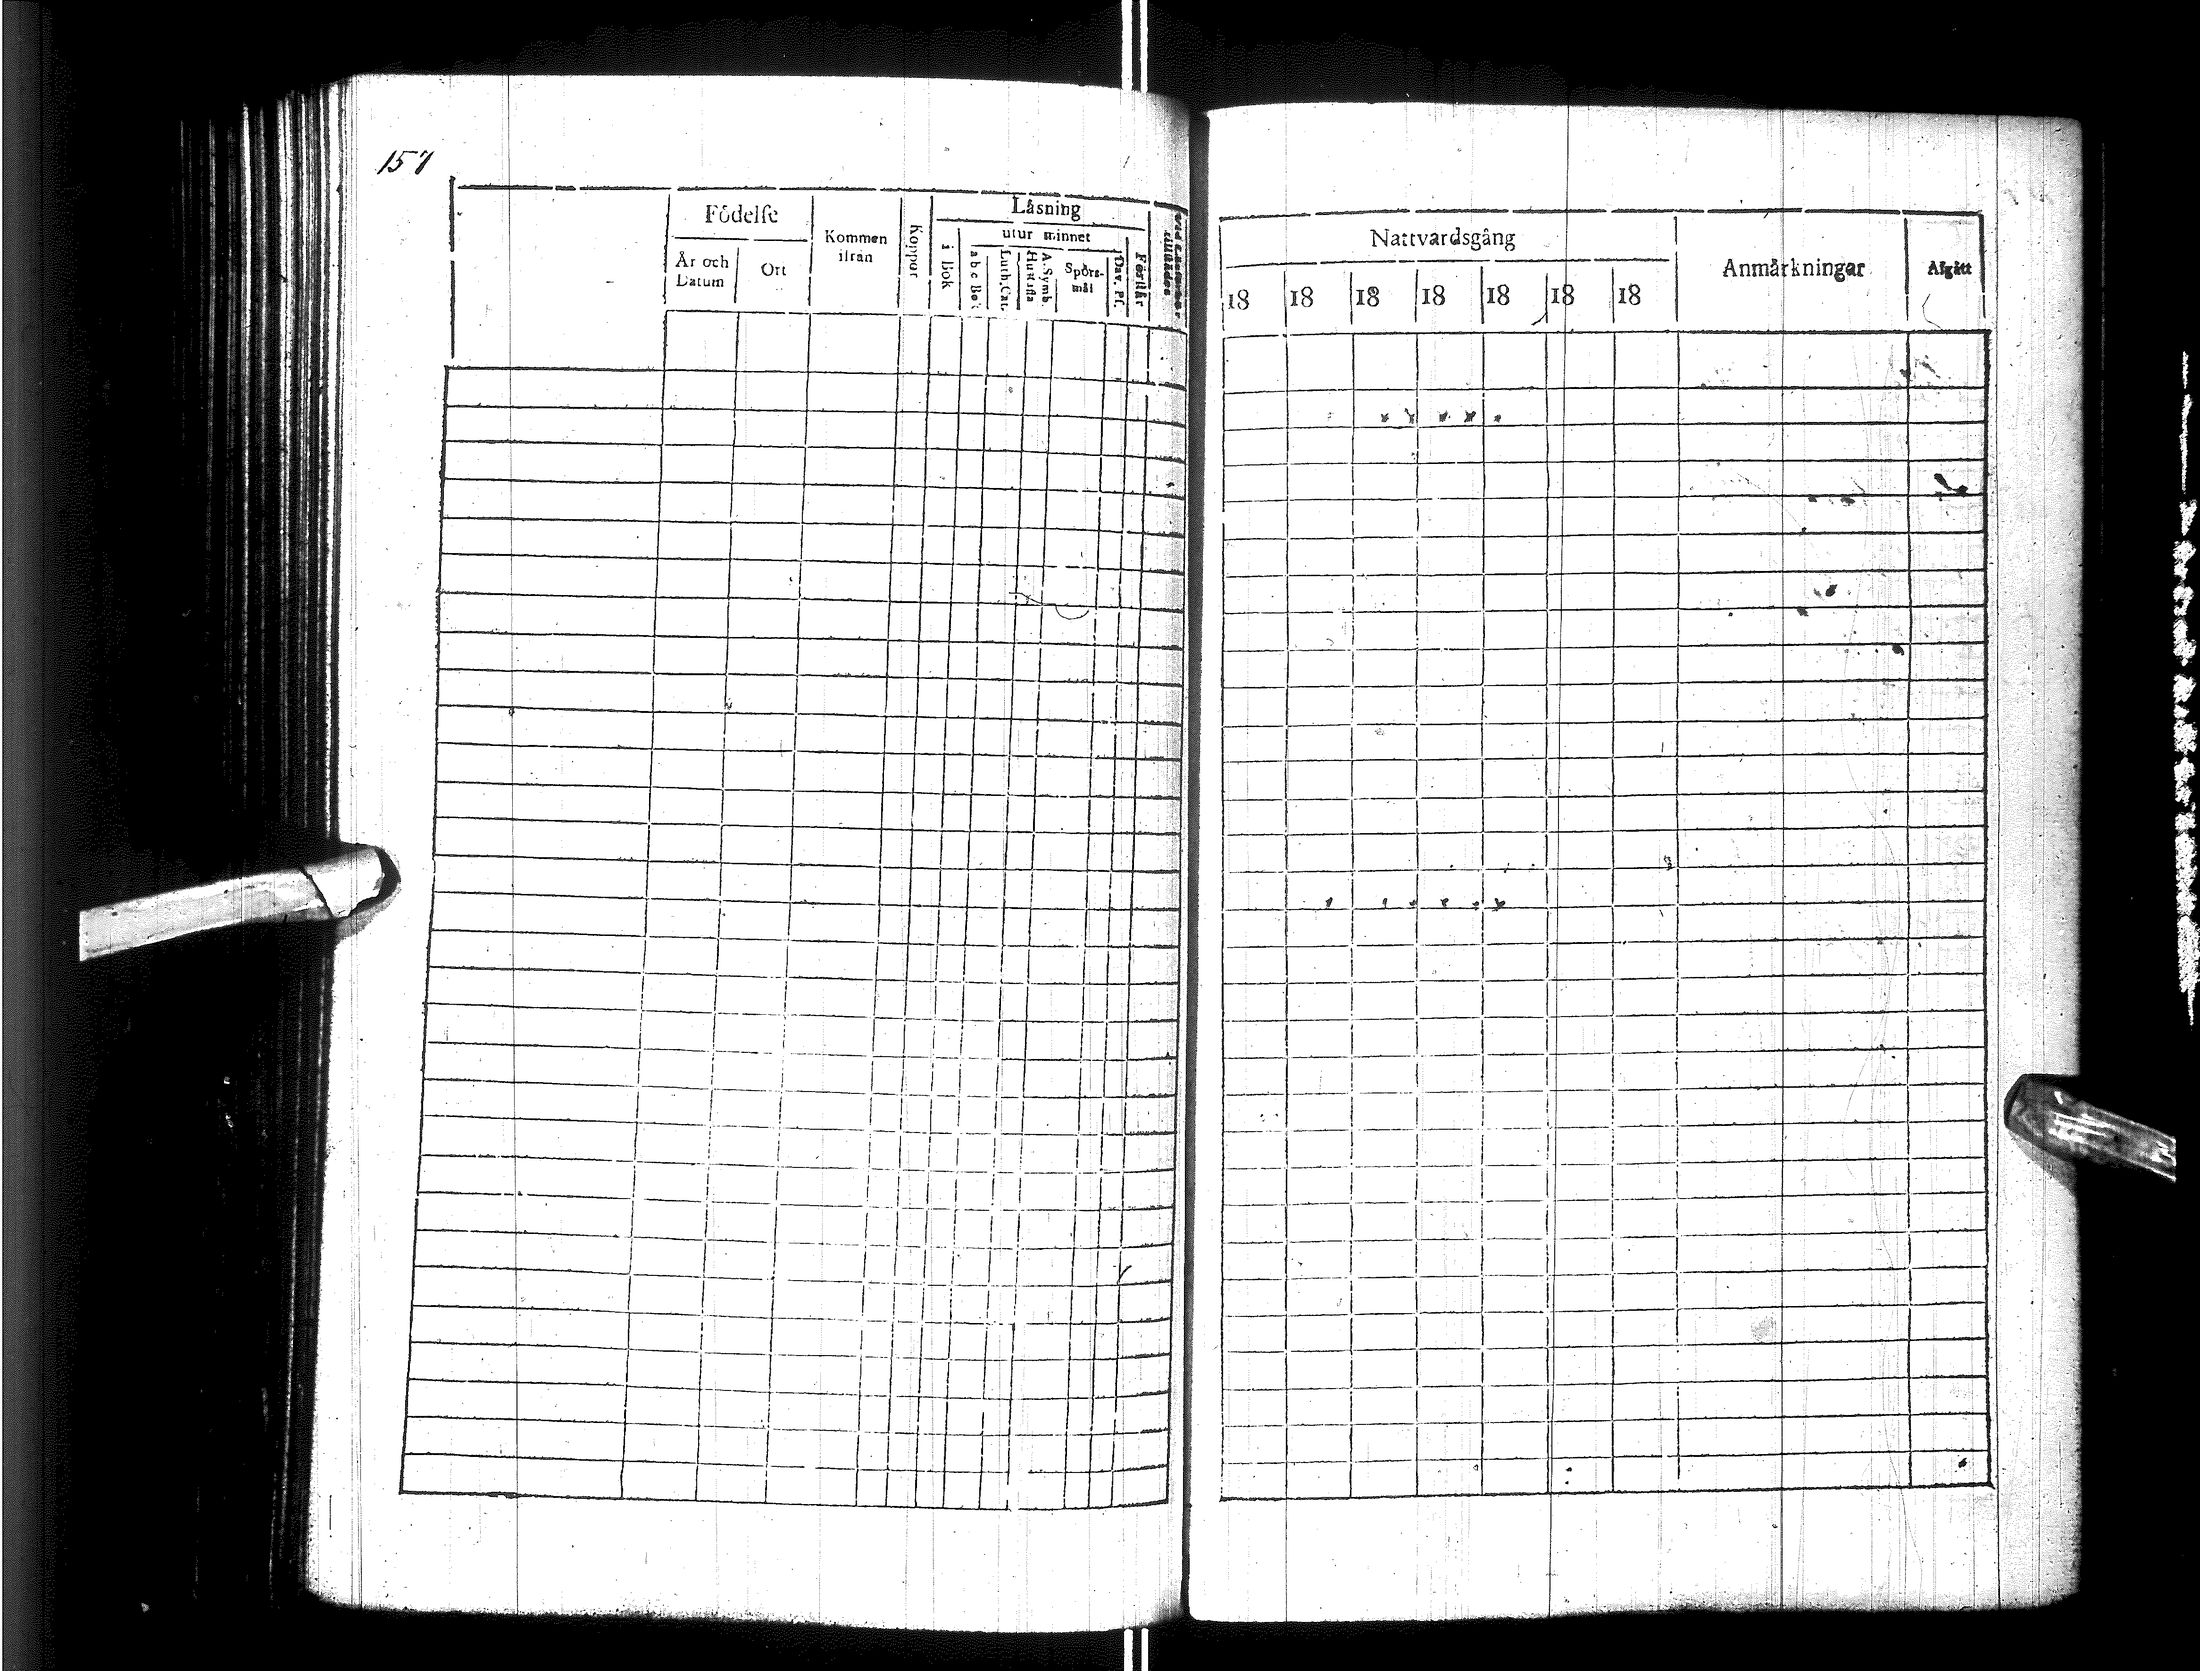 157
Födelse
År och
Datum
Ort
Kommen
ifrån
Koppor
Läsning
i Bok
utur minnet
a b c Bok
Luth. Cat.
Hustafla
A. Symb.
Spörs-
mål
Dav. Ps.
Förstår
Nattvardsgång
18 18 18 18 18 18 18
Anmärkningar
Afgått